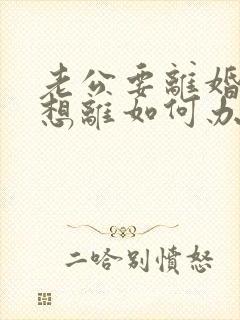 老公要離婚
想離如何办
二哈別憤怒